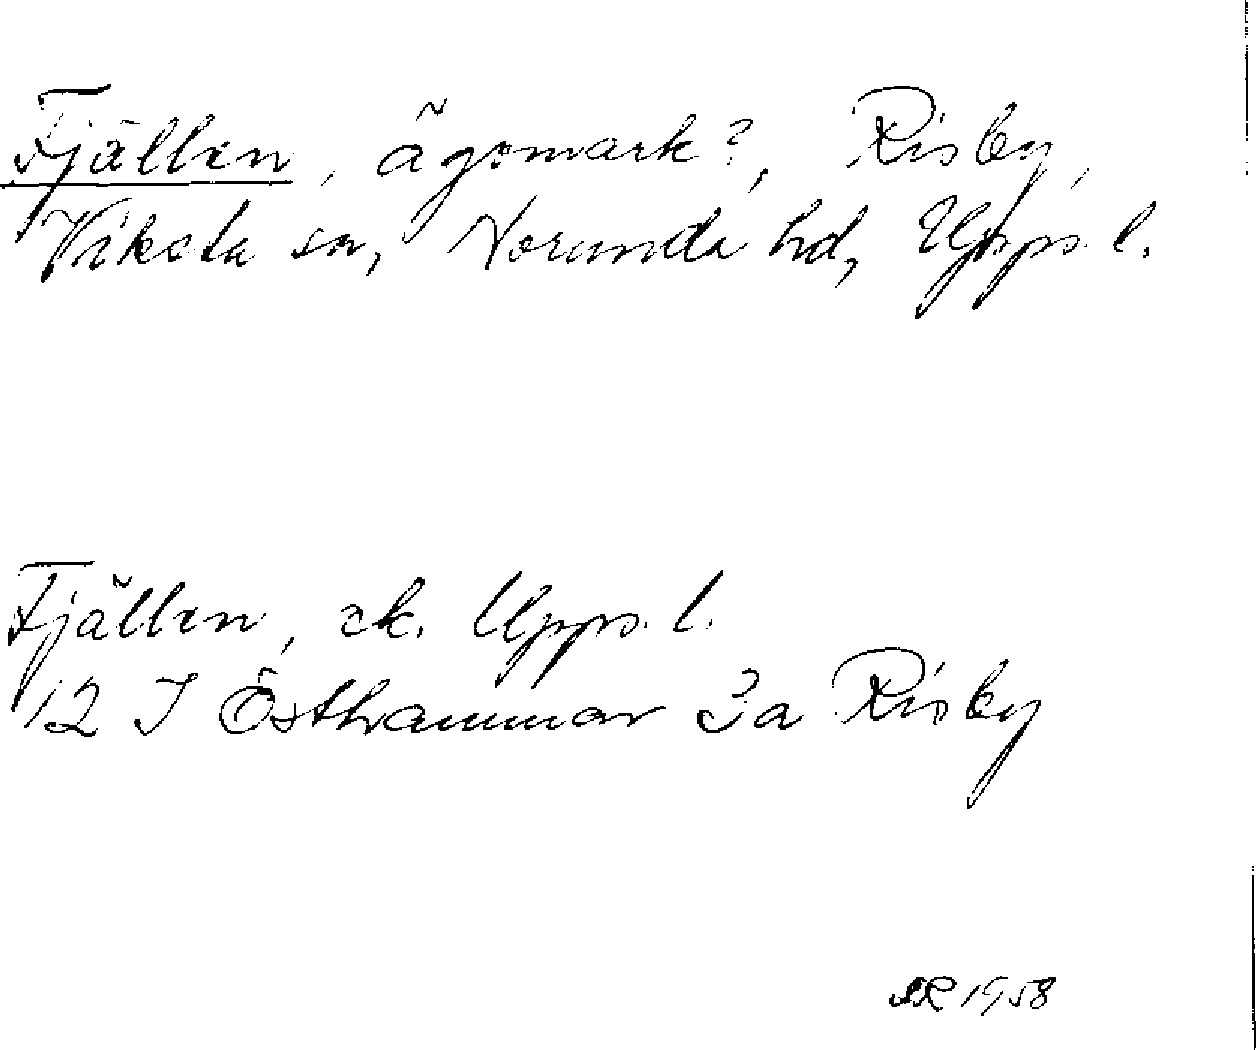 Fjällen, ägomark?, Risby,
Viksta sn, Norunda hd, Upps. l.
Fjällen, ek. Upps. l.
12 I Östhammar 3a Risby
AR 1958